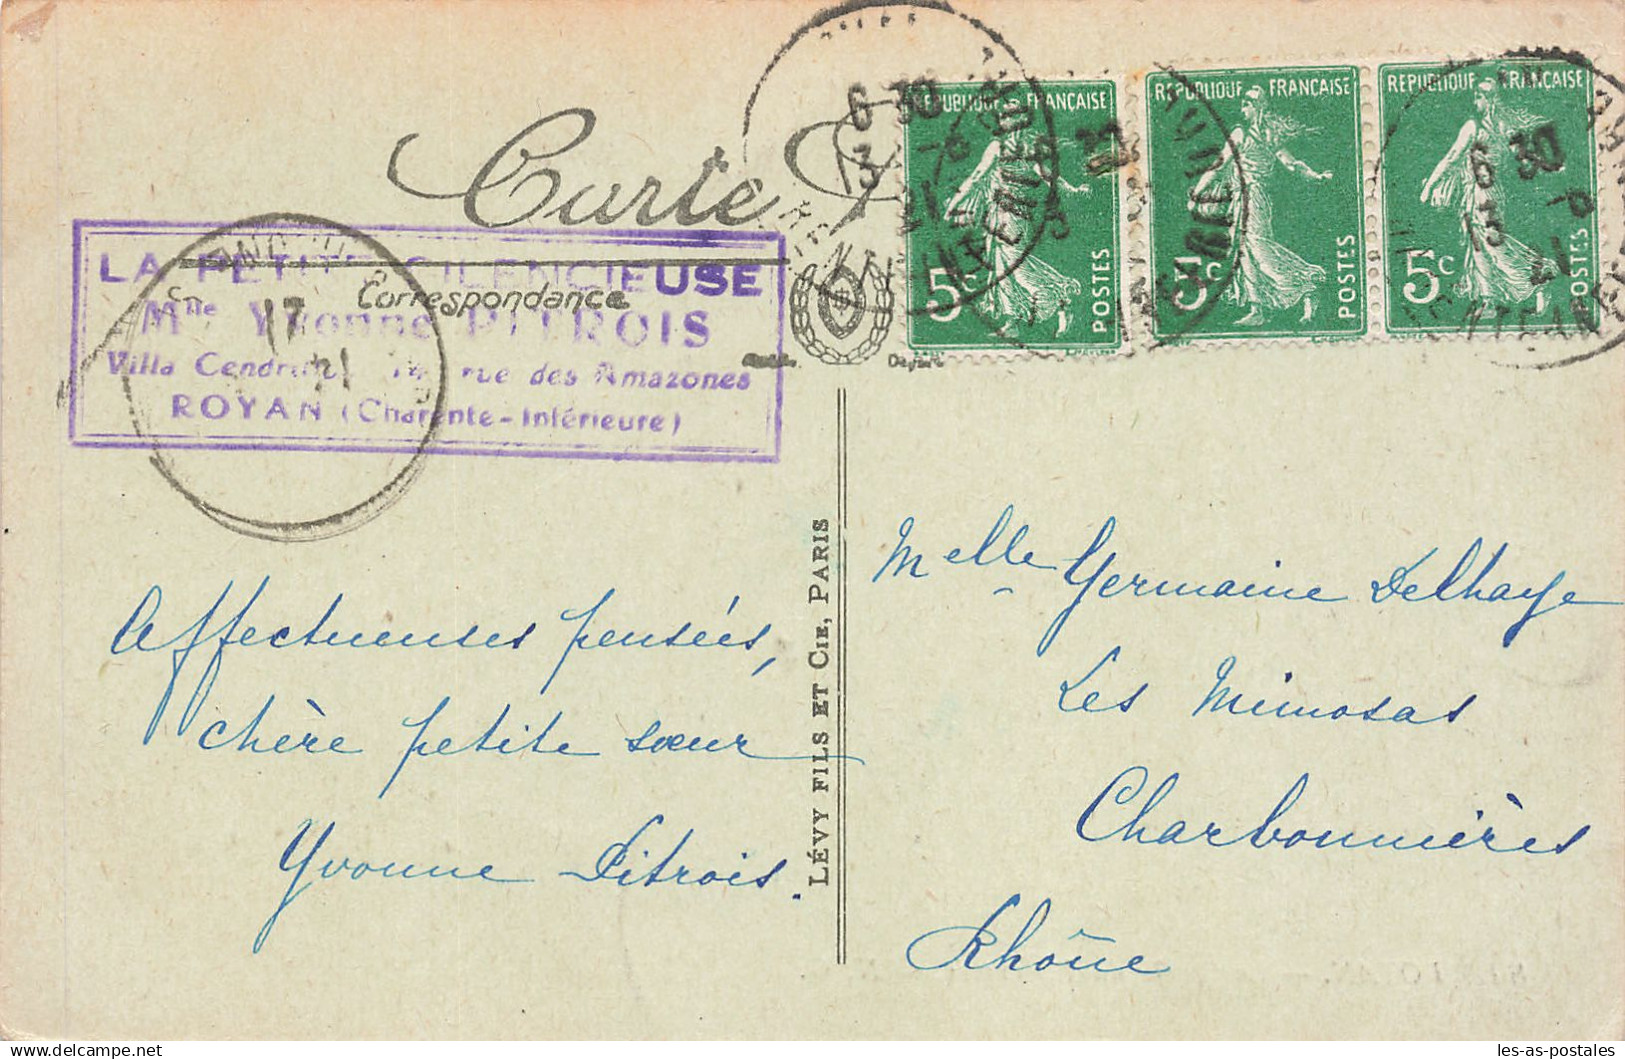 Carte
LA PETITE SILENCIEUSE
Correspondance
Mlle Yvonne PITROIS
Villa rue des Amazones
ROYAN (Charente-Inférieure)
17
21
6 30
13 -6
21
REPUBLIQUE FRANÇAISE
5c
POSTES
REPUBLIQUE FRANÇAISE
5c
POSTES
REPUBLIQUE FRANÇAISE
5c
POSTES
6 30
13
21
LÉVY FILS ET CIE, PARIS
Affectueuses pensées,
chère petite sœur
Yvonne Pitrois.
Melle Germaine Delhaye
Les Mimosas
Charbonnières
Rhône
Delcampe.net
les-as-postales